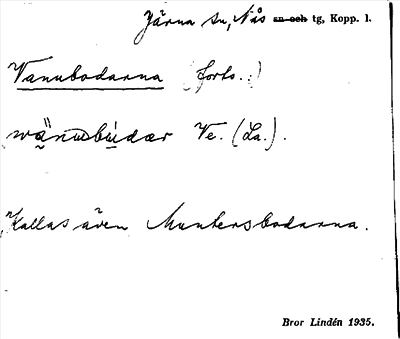 Järna sn, Nås sn och tg, Kopp. l.
Vannbodarna (forts.)
wä̰nnbúdær Ve. (La.).
Kallas även Muntersbodarna.
Bror Lindén 1935.